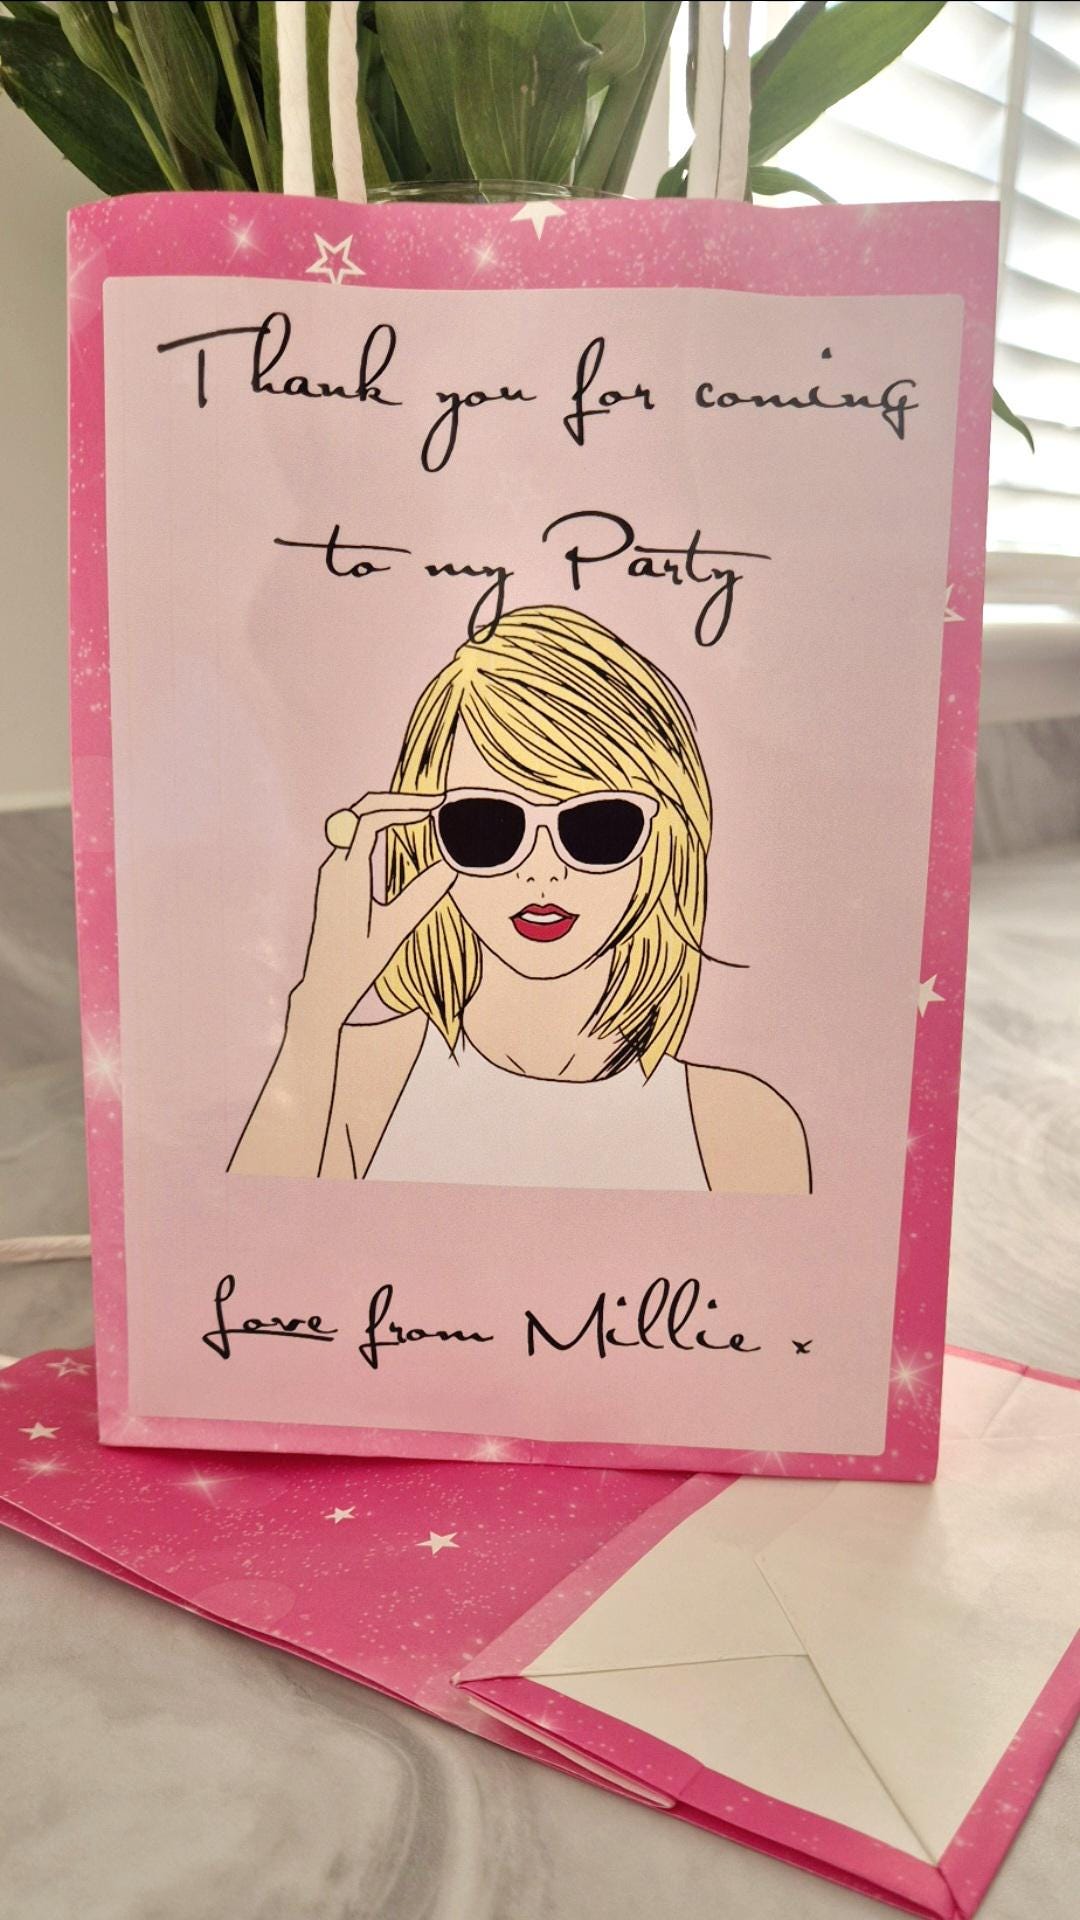 Thank you for coming
to my Party
Love from Millie x